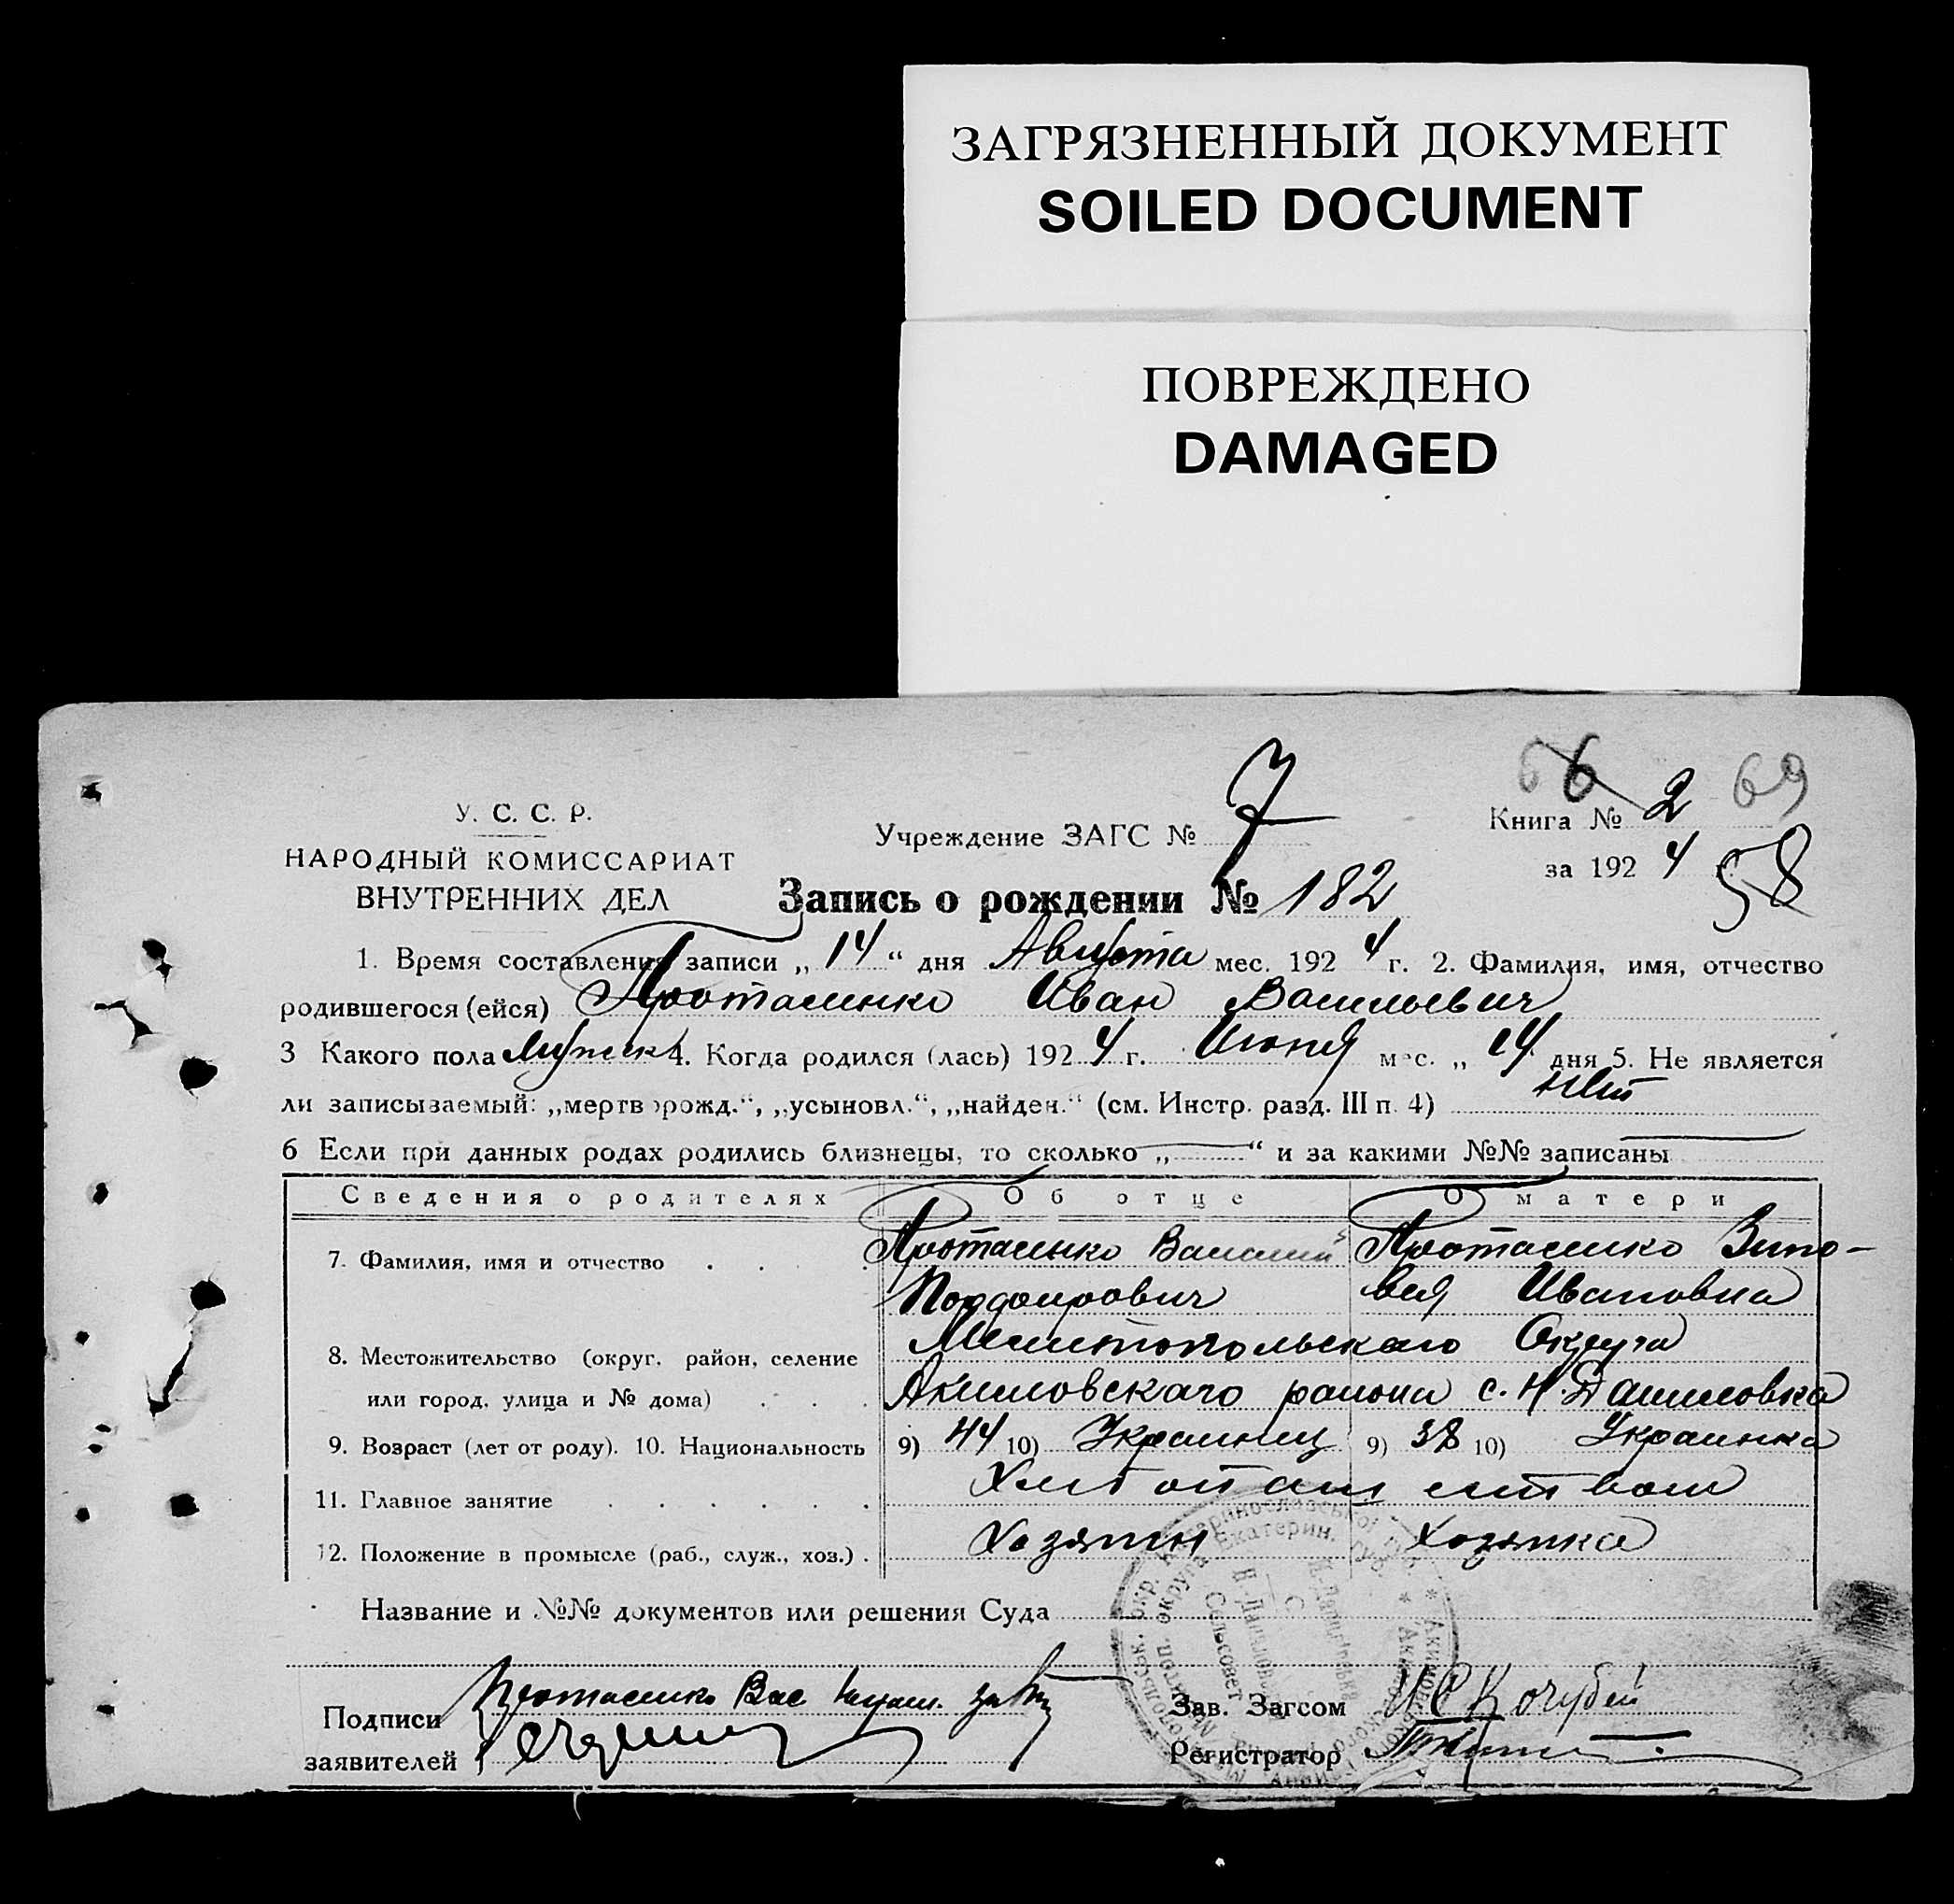 ЗАГРЯЗНЕННЫЙ ДОКУМЕНТ
SOILED DOCUMENT
ПОВРЕЖДЕНО
DAMAGED
66 69
У. С. С. Р.
НАРОДНЫЙ КОМИССАРИАТ
ВНУТРЕННИХ ДЕЛ
Учреждение ЗАГС № 7
Книга № 2
за 1924 г.
58
Запись о рождении № 182
1. Время составления записи „14“ дня Августа мес. 1924 г. 2. Фамилия, имя, отчество
родившегося (ейся) Протасенко Иван Васильевич
3 Какого пола Мужск 4. Когда родился (лась) 1924 г. Июня мес. „14 дня 5. Не является
ли записываемый: „мертворожд.“, „усыновл.“, „найден.“ (см. Инстр. разд. III п. 4) нет
6 Если при данных родах родились близнецы, то сколько „ “ и за какими №№ записаны
Сведения о родителях Об отце О матери
7. Фамилия, имя и отчество Протасенко Василий Протасенко Зино-
вея Ивановна
8. Местожительство (округ, район, селение Мелитопольского Округа
или город, улица и № дома) Акимовского района с. Н. Даниловка
9. Возраст (лет от роду). 10. Национальность 9) 44 10) Украинец 9) 38 10) Украинка
11. Главное занятие Хлебопашеством
12. Положение в промысле (раб., служ., хоз.) Хозяин Хозяйка
Название и №№ документов или решения Суда
Подписи Протасенко Вас
заявителей
Зав. Загсом И С Кочубей
Регистратор
Н.-Даниловський
Сельсовет